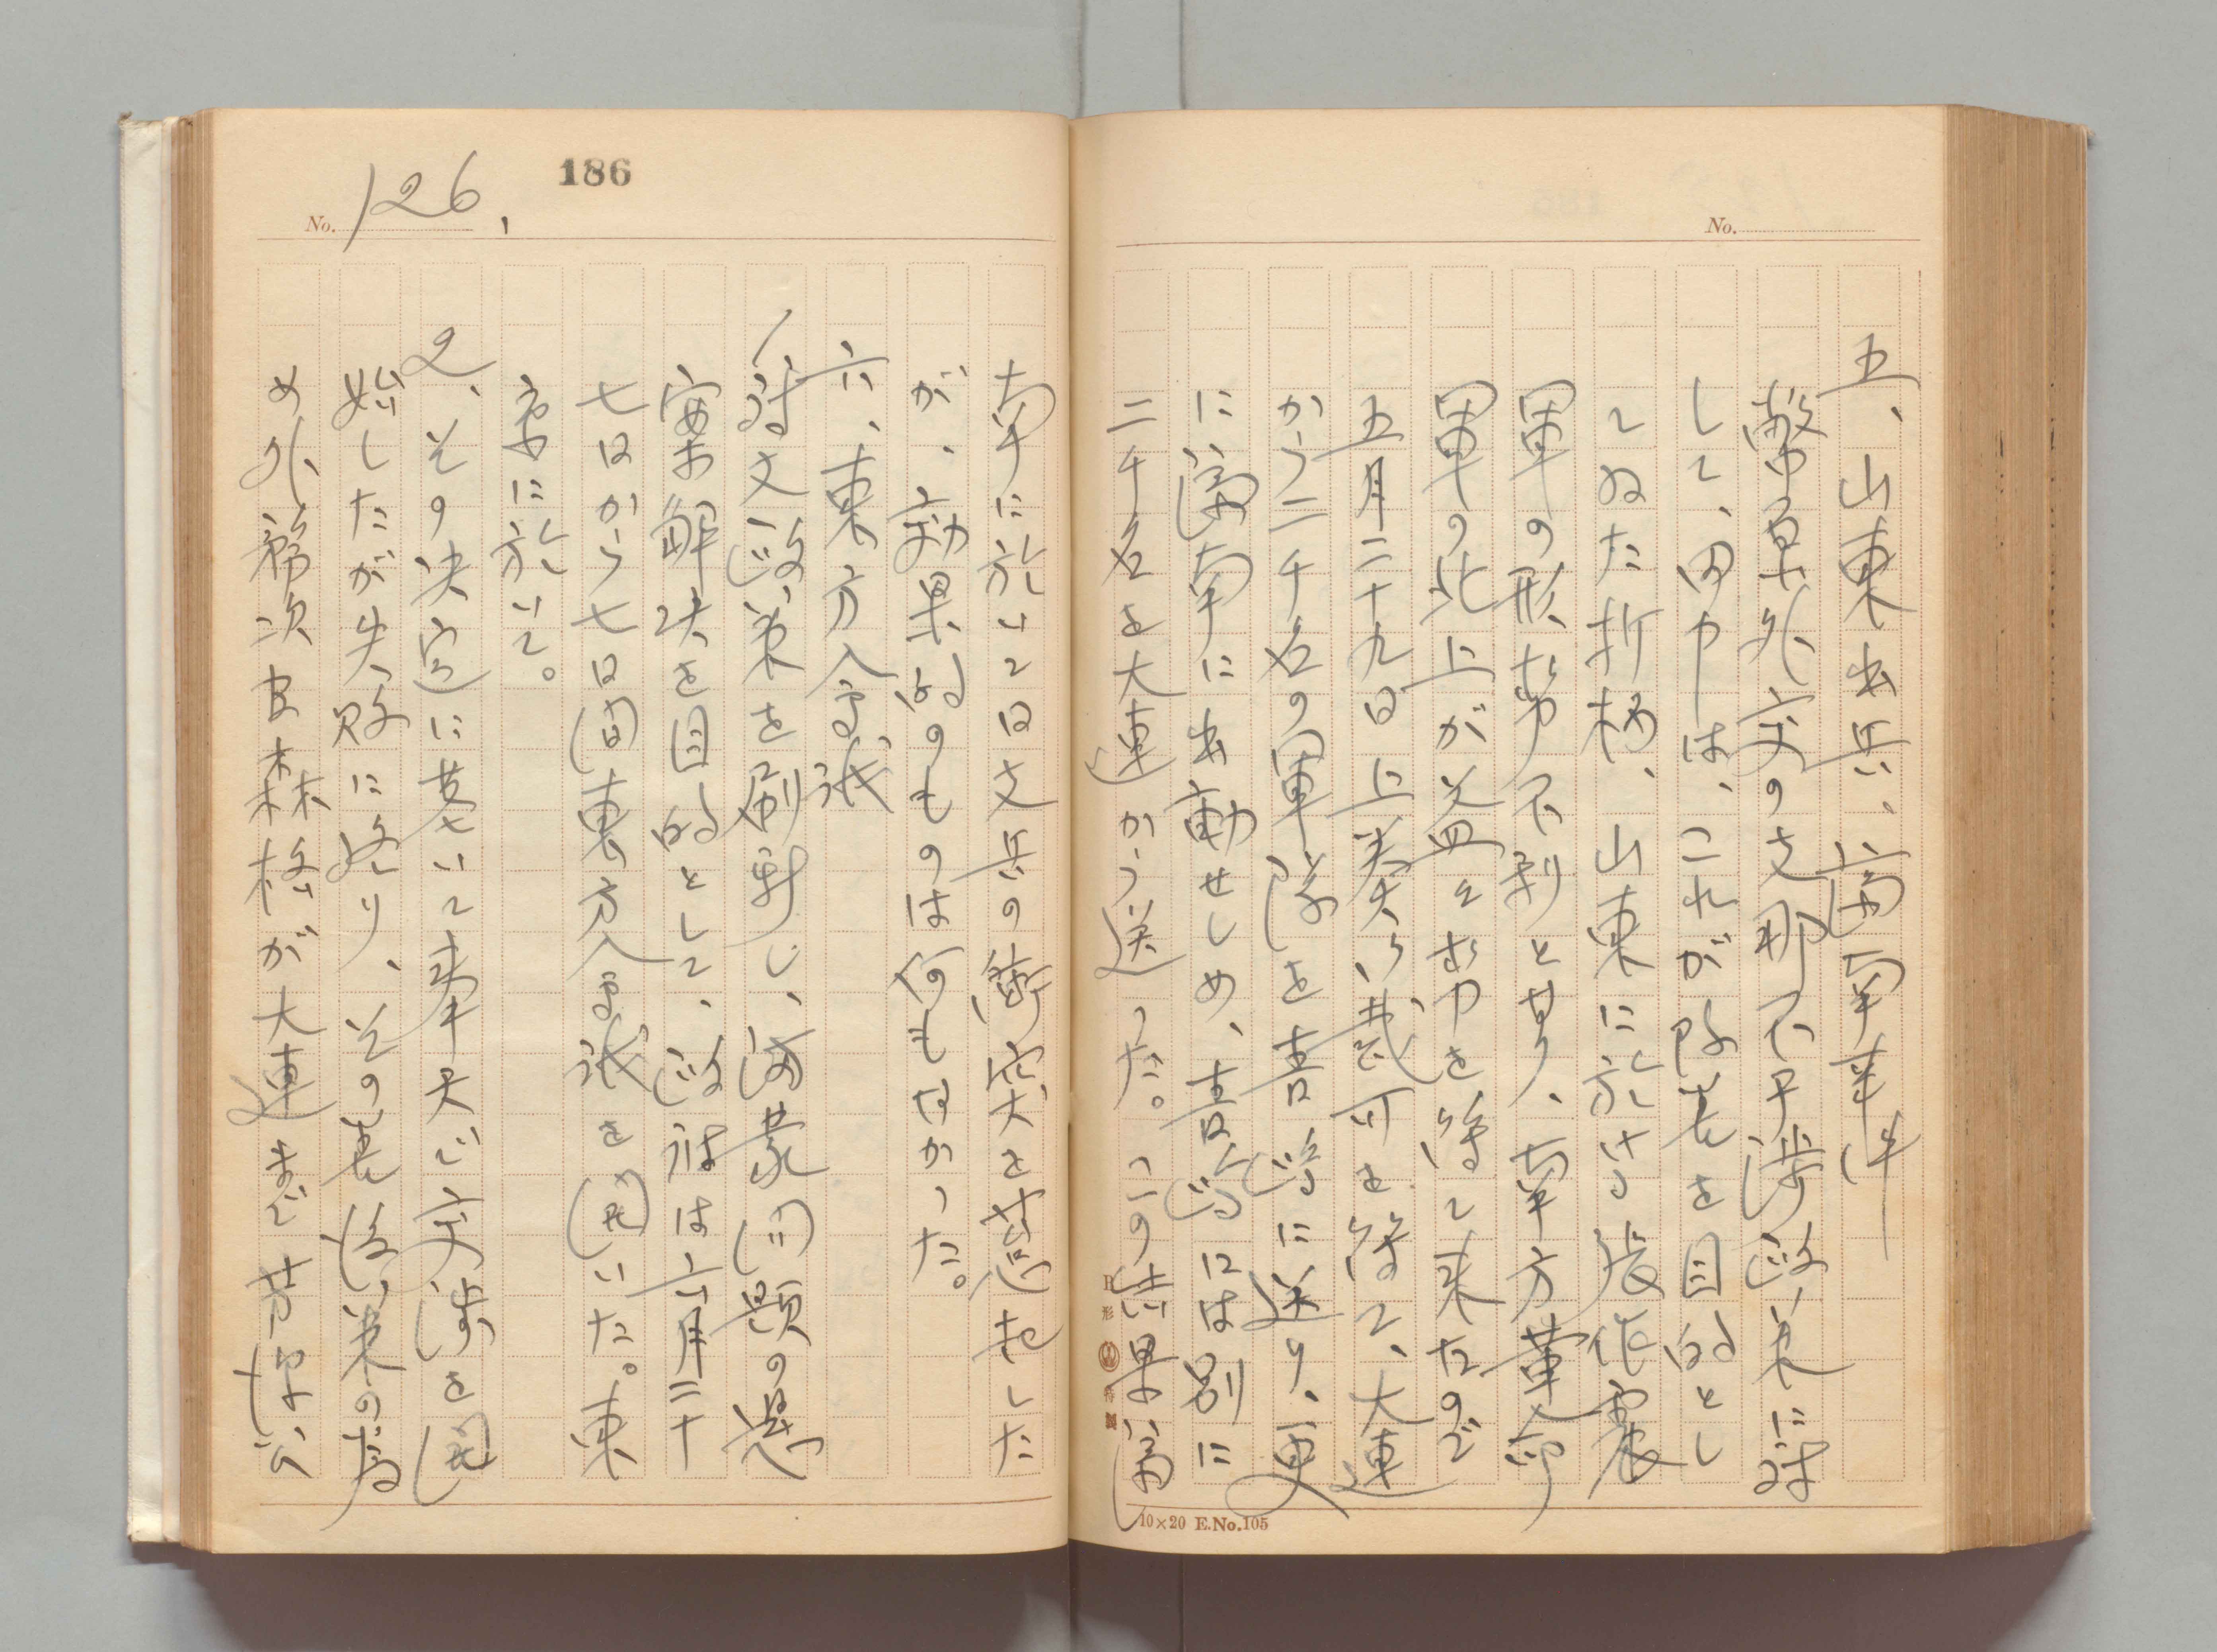 No.
五、山東出兵。済南事件
幣原外交の支那不干渉政策に対
して、田中は、これが改善を目的とし
てゐた折柄、山東に於ける張作霖
軍の形勢不利となり、南方革命
軍の北上が益々勢力を得て来たので
五月二十九日上奏御裁可を得て、大連
から二千名の軍隊を青島に送り、更
に済南に出動せしめ、青島には別に
二千名を大連から送った。この結果済
10×20 E.No.105
186
No. 126.
南に於いて日支兵の衝突を惹起した
が、効果的のものは何もなかった。
六、東方会議
1 対支政策を刷新し、満蒙問題の
案お解決を目的として、政府は六月二十
七日から七日間東方会議を開いた。東
京に於いて。
2、その決定に基いて奉天で交渉を開
始したが失敗に終り、その善後策の為
め外務次官森恪が大連まで出かけ